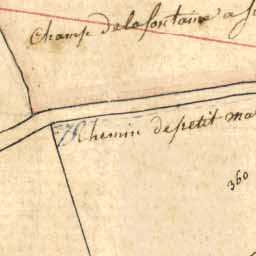 Champ de la fontaine a
Chemin de petit
360